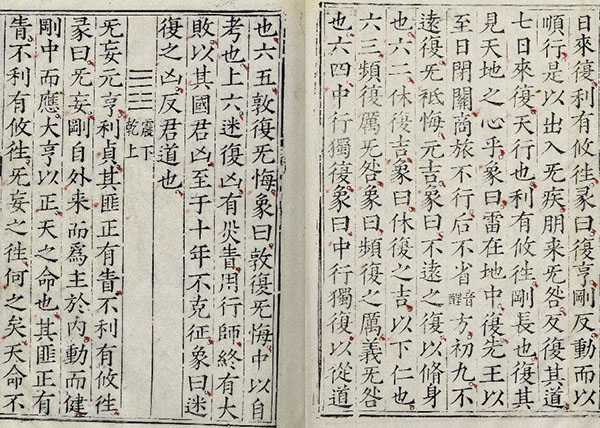 日來復利有攸徃彖曰復亨剛反動而以
順行是以出入旡疾朋来旡咎反復其道
七日來復天行也利有攸徃剛長也復其
見天地之心乎象曰雷在地中復先王以
至日閉關啇旅不行后不省音醒方初九不
逺復旡祇悔元吉象曰不逺之復以脩身
也六二休復吉象曰休復之吉以下仁也
六三頻復厲旡咎象曰頻復之厲義旡咎
也六四中行獨復象曰中行獨復以從道
也六五敦復旡悔象曰敦復旡悔中以自
考也上六迷復凶有灾眚用行師終有大
敗以其國君凶至于十年不克征象曰迷
復之凶反君道也
震下
乾上
旡妄元亨利貞其匪正有眚不利有攸徃
彖曰旡妄剛自外来而爲主於内動而健
剛中而應大亨以正天之命也其匪正有
眚不利有攸徃旡妄之徃何之矣天命不